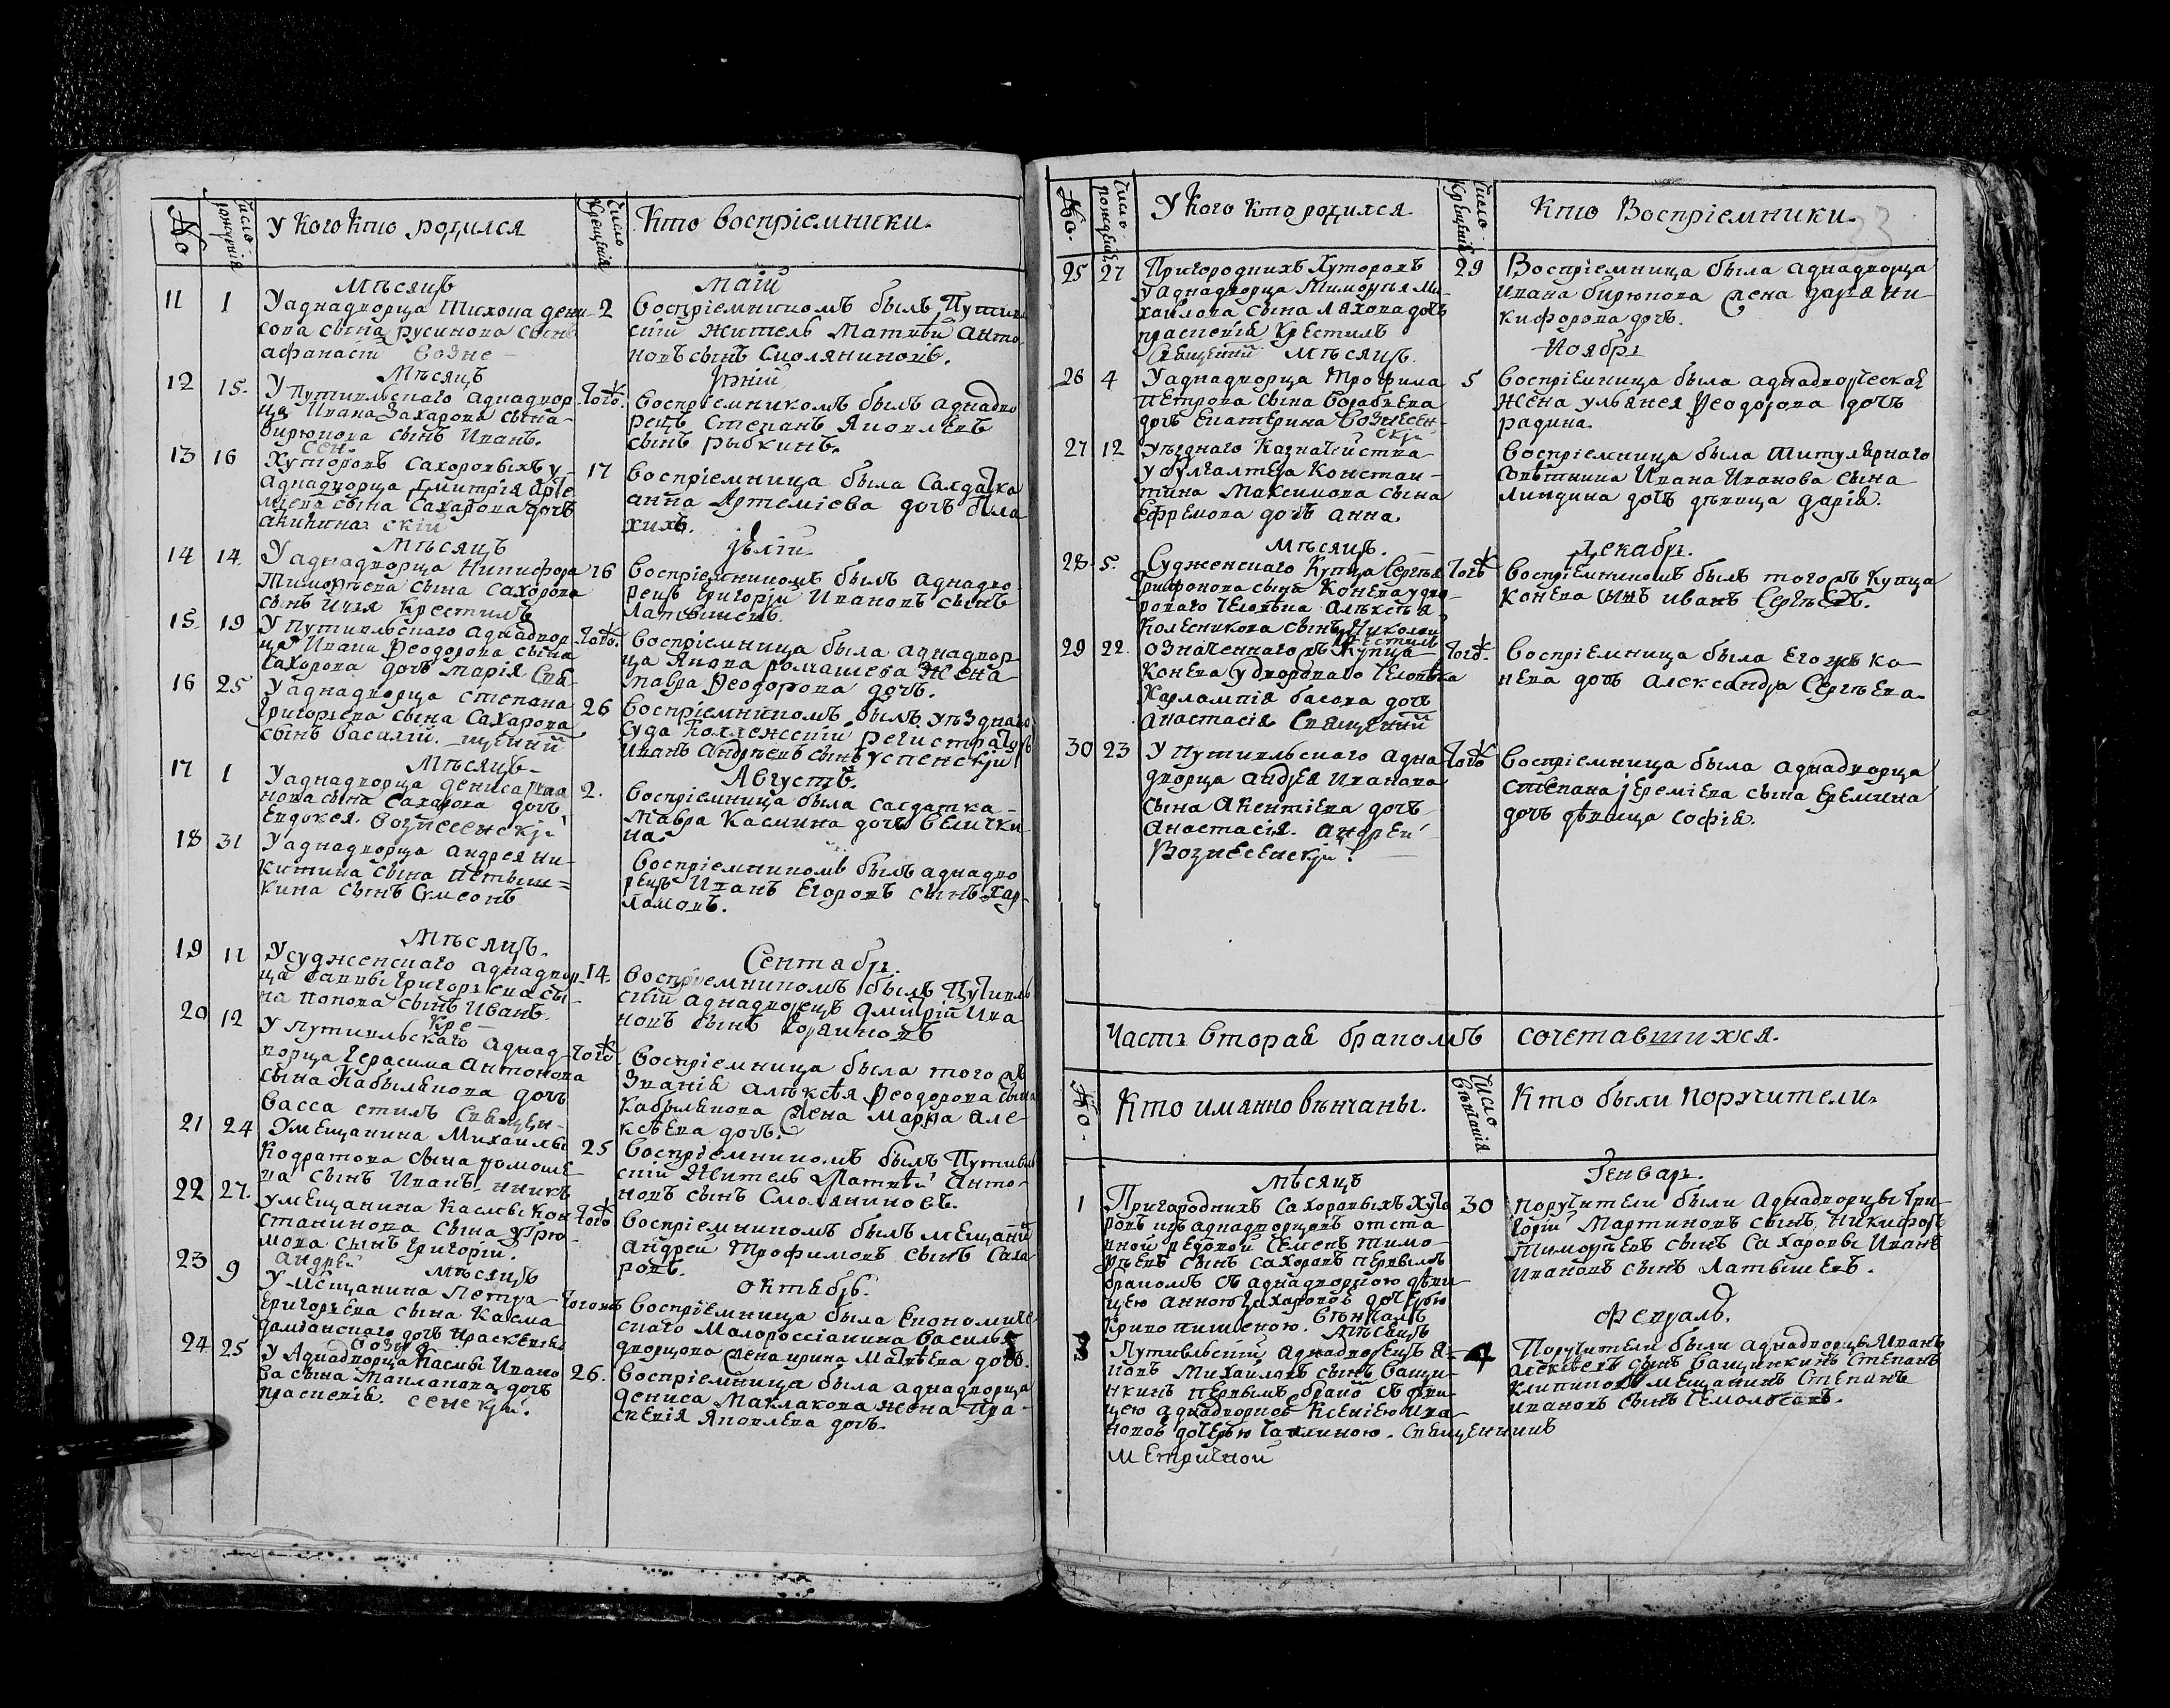 No
Число рождения
У кого кто родился
Число крещения
Кто воспріемники.
Мѣсяцъ
Маій
11 1 У аднадворца Тихона дени-
сова сына русинова сынъ
афанасій Возне-
2 воспріемникомъ былъ Путивль
скій житель Матвѣй анто-
новъ сынъ Смоляниновъ.
Мѣсяцъ
Іюній
12 15. У Путивльскаго аднадвор-
ца Ивана Захарова сына-
бирюкова сынъ Иванъ.
сен-
Того. воспріемникомъ былъ аднадво
рецъ Степанъ Яковлевъ
сынъ рыбкинъ.
13 16 Хуторовъ сахоровыхъ у-
аднадворца дмитрія арте
міева сына Сахарова дочь
акилина скій
17 воспріемница была Салдатка
анна Артеміева дочь
хихъ.
Мѣсяцъ
Іюлій.
14 14. У аднадворца Никифора
Тимофѣева сына Сахорова
сынъ илія крестилъ
16 воспріемникомъ былъ аднадво
рецъ григорій Ивановъ сынъ
латышевъ.
15 19 У путивльскаго аднадвор
ца Ивана Ѳеодорова сына
сахорова дочь марія Свя-
Того. воспріемница была аднадвор
ца Якова ромашева жена
мавра Ѳеодорова дочь.
16 25 У аднадворца степана
григорьева сына Сахарова
сынъ василій. щенній
26 воспріемникомъ былъ уѣзднаго
суда коллежскій регистраторъ
иванъ андрѣевъ сынъ успенскій
Мѣсяцъ-
Августъ.
17 1 У аднадворца дениса ива
нова сына сахарова дочь
евдокея. Вознесенскій
2. воспріемница была салдатка-
мавра касмина дочь велички
на.
18 31 У аднадворца андрея ни-
китина сына петыш=
кина сынъ Симеонъ
воспріемникомъ былъ аднадво
рецъ Иванъ Егоровъ сынъ хар-
ламовъ.
Мѣсяцъ.
Сентабрь.
19 11 У судженскаго аднадвор-
ца саввы григорьева сы-
на попова сынъ иванъ.
кре-
14. воспріемникомъ былъ Путивль
скій аднадворецъ дмитрій Ива
новъ сынъ
20 12 У путивльскаго аднад-
ворца герасима антонова
сына кабылякова дочь
васса стилъ Священ-
Того воспріемница была того жъ
званія алѣксѣя Ѳеодорова сына
кабылякова жена марѳа але-
ксѣева дочь.
21 24 У мещанина михаилы
кодратова сына ромаше
ва сынъ Иванъ. нникъ
25 воспріемникомъ былъ Путивль
скій житель матвѣй анто-
новъ сынъ Смоляниновъ.
22 27. У мещанина касмы кон
станинова сына угрю-
мова сынъ григорій.
андрей
Того воспріемникомъ былъ мещанинъ
андрей трофимовъ сынъ саха-
ровъ.
мѣсяцъ
октебрь.
23 9 У мещанина петра
григорьева сына касма
дамьанскаго дочь праскевія
возне
Тогожъ воспріемница была Економиче
скаго малороссіанина васильа
дворцова жена ирина матвѣева дочь.
24 25 У аднадворца касмы ивано
ва сына маклакова дочь
праскевія. сенскій.
26. воспріемница была аднадворца
дениса маклакова жена пра-
скевія яковлева дочь.
33
No.
Число рожденія
У кого кто родился.
Число крещенія
Кто Воспріемники.
25 27 Пригороднихъ Хуторовъ
у аднадворца Тимофея ми-
хайлова сына Ляхова дочь
праскевія крестилъ
Священнй
29 Воспріемница была аднадворца
ивана бирюкова жена дарія ни-
кифорова дочь.
Мѣсяцъ.
Ноябрь
26 4 У аднадворца трофима
петрова сына
дочь Екатерина вознесен-
скій
5 воспріемница была аднадворческая
жена ульянея Ѳеодорова дочь
радина.
27 12 уѣзднаго казначейства
у бухгалтера констан-
тина максимова сына
ефремова дочь анна.
воспріемница была титулярнаго
Совѣтника ивана иванова сына
линдина дочь дѣвица дарія.
Мѣсяцъ.
декабрь.
28. 5. Судженскаго купца сергѣя
трифонова сына конева у дво-
роваго человѣка алѣксѣя
колесникова сынъ николай
крестилъ
Того воспріемникомъ былъ тогожъ купца
конева сынъ иванъ Сергѣевъ.
29 22. означеннагожъ купца
конева у двороваго человѣка
харлампія басова дочь
анастасія Священний
Того. воспріемница была Егожъ ко-
нева дочь александра Сергѣева.
30 23 У Путивльскаго адна
дворца андрея иванова
сына акентіева дочь
анастасія. андрей
Вознесенскій.
Того воспріемница была аднадворца
степана іереміева сына еремина
дочь дѣвица софія.
Часть вторая бракомъ сочетавшихся.
No.
Кто имянно вѣнчаны.
Число вѣнчанія
Кто были поручители.
мѣсяцъ
Генварь.
1 Пригороднихъ Сахоровыхъ хуто
ровъ изъ аднадворцовъ отста
вной рядовой семенъ тимо-
ѳѣевъ сынъ сахоровъ первымъ
бракомъ съ аднадворкою дѣви
цею анною захаровою дочерью
кривопишеною. вѣнчалъ
30 поручители были аднадворцы гри-
горій мартиновъ сынъ, никифоръ
тимоѳѣевъ сынъ сахаровы иванъ
ивановъ сынъ латышевъ.
мѣсяцъ
февраль.
3 Путивльскій аднадворецъ я-
ковъ михайловъ сынъ ващи-
нкинъ первымъ бракомъ съ дѣви-
цею аднадворкою ксеніею ива
новою дочерью Священникъ
метричной
4 Поручители были аднадворцы иванъ
алексѣевъ сынъ ващинкинъ степанъ
мещанинъ степанъ
ивановъ сынъ